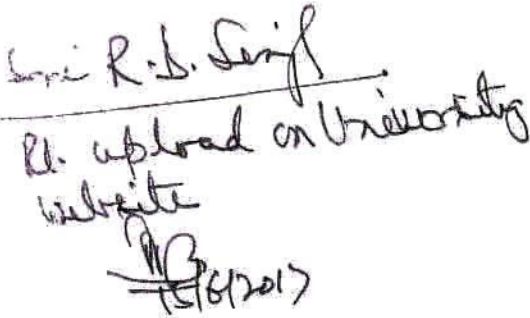 Sri R.S. Singh
Pl. upload on University
website
15/6/2017